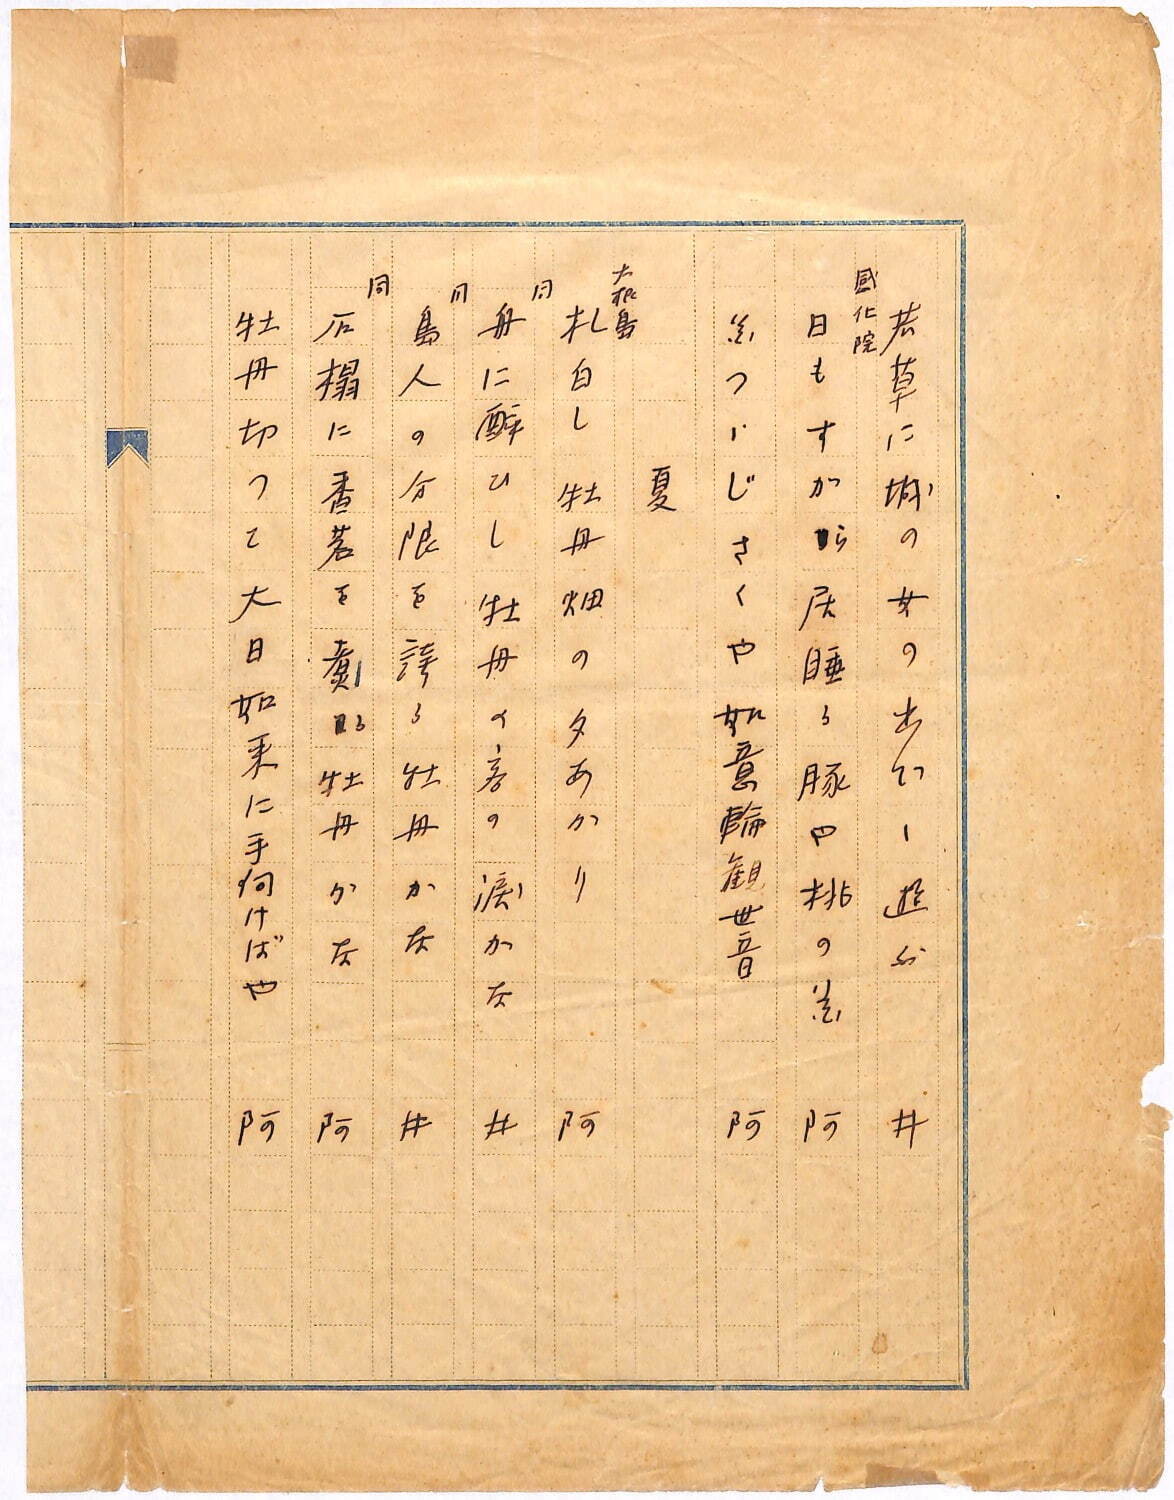 若草に城の女の出でゝ遊ぶ 井
感化院
日もすがら居睡る豚や桃の花 阿
花つゝじさくや如意輪観世音 阿
夏
大根島
札白し牡丹畑の夕あかり 阿
同
舟に酔ひし牡丹の客の涙かな 井
同
島人の分限を誇る牡丹かな 井
同
石榻に香茗を賣る牡丹かな 阿
牡丹切つて大日如来に手向けばや 阿